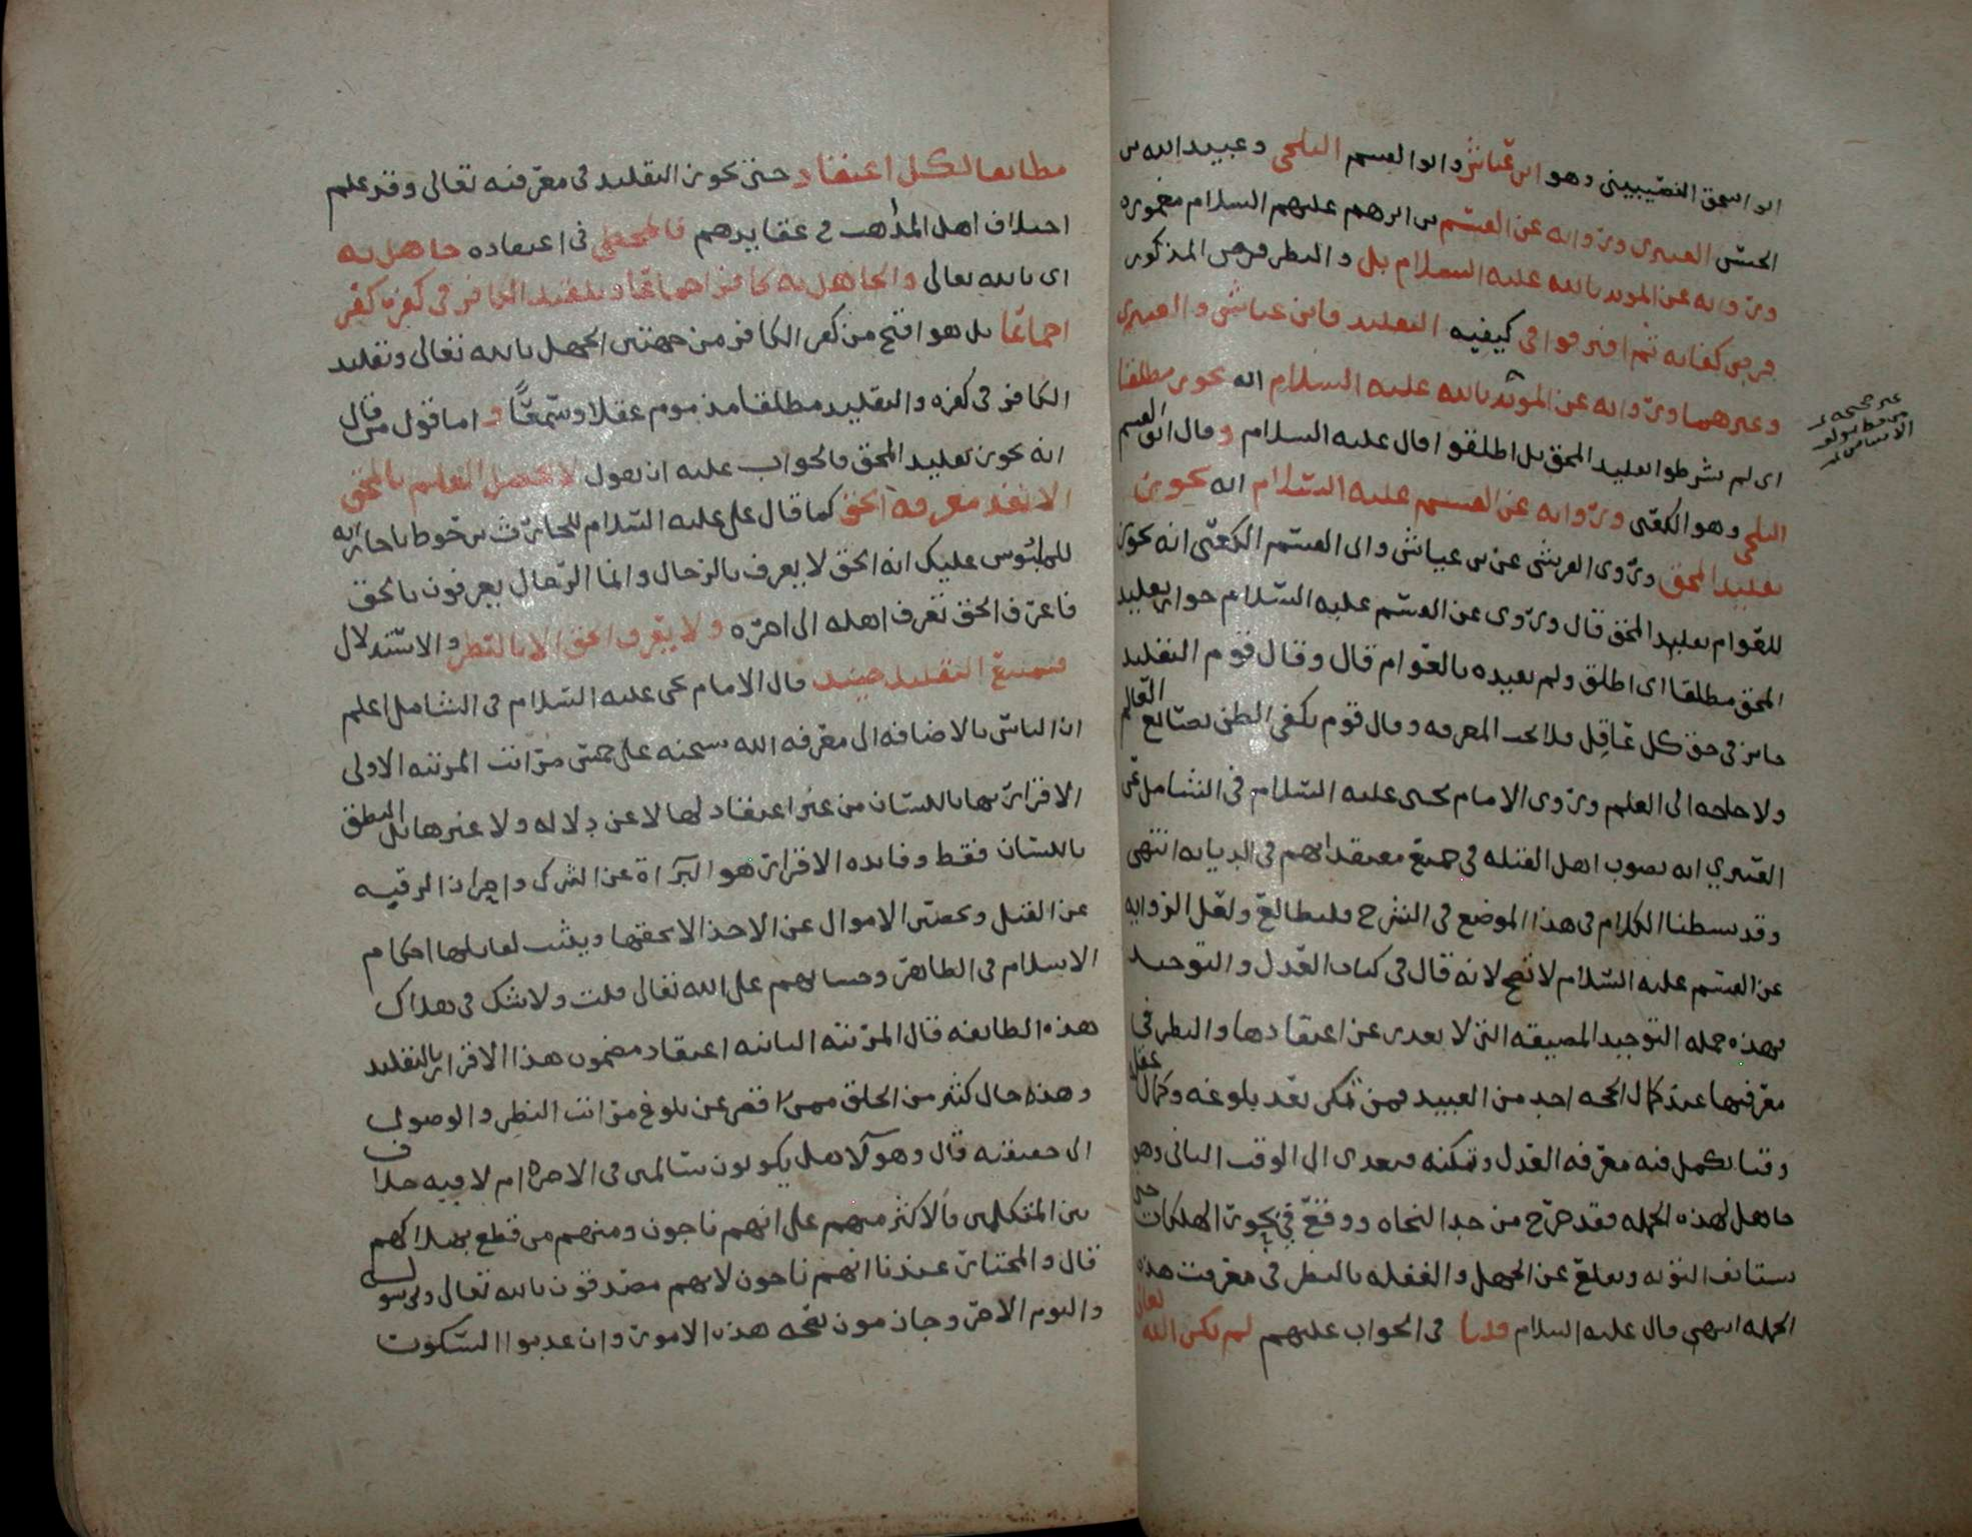 ابو اسحق النصيبيني وهو ابن عياش وابو القسم البلخي وعبيد الله بن
الحسن العنبري ورواية عن القسم بن ابرهيم عليهم السلام مغمورة
ورواية عن المويد بالله عليه السلام بل والنظر فرض المذكور
فرض كفاية ثم افترقوا في كيفية التقليد فابن عياش والعنبري
وغيرهما ورواية عن المؤيد بالله عليه السلام انه يجوز مطلقا
اي لم يشرطوا تقليد المحق بل اطلقوا قال عليه السلام وقال ابو القسم
البلخي وهو الكعبي ورواية عن القسم عليه السلام انه يجوز
تقليد المحق وروى القرشي عن بن عياش وابي القسم الكعبي انه يجوز
للعوام تقليد المحق قال وروى عن القسم عليه السلام جواز تقليد
المحق مطلقا اي اطلق ولم يقيده بالعوام قال وقال قوم التقليد
جايز في حق كل عاقل فلا تجب المعرفة وقال قوم يكفي الظن بصانع العالم
ولا حاجة الى العلم وروى الامام يحيى عليه السلام في الشامل عن
العنبري انه يصوب اهل القبلة في جميع معتقداتهم في الديانة انتهى
وقد بسطنا الكلام في هذا الموضع في الشرح فليطالع ولعل الرواية
عن القسم عليه السلام لا تصح لانه قال في كتاب العدل والتوحيد
فهذه جملة التوحيد المضيقة التي لا يعذر عن اعتقادها والنظر في
معرفتها عند كمال الحجة احد من العبيد فمن مكن بعد بلوغه وكمال عقله
وقتا يكمل فيه معرفة العدل وتمكنه فتعدى الى الوقت الثاني وهو
جاهل لهذه الجملة فقد خرج من حد النجاة ووقع في بحور الهلكات حتى
يستانف التوبة ويقلع عن الجهل والغفلة بالنظر في معرفت هذه
الجملة انتهى قال عليه السلام قلنا في الجواب عليهم لم يكن الله تعالى
مطابقا لكل اعتقاد حتى يجوز التقليد في معرفته تعالى وقد علم
اختلاف اهل المذاهب في عقايدهم فالمخطي في اعتقاده جاهل به
اي بالله تعالى والجاهل به كافر اجماعا وتقليد الكافر في كفره كفر
اجماعا بل هو اقبح من كفر الكافر من جهتين الجهل بالله تعالى وتقليد
الكافر في كفره والتقليد مطلقا مذموم عقلا وسمعا و اما قول من قال
انه يجوز تقليد المحق فالجواب عليه ان نقول لا يحصل العلم بالمحق
الا بعد معرفة الحق كما قال علي عليه السلام للحارث بن حوط يا حار انه
للملبوس عليك ان الحق لا يعرف بالرجال وانما الرجال يعرفون بالحق
فاعرف الحق تعرف اهله الى اخره ولا يعرف الحق الا بالنظر والاستدلال
فيمتنع التقليد حينيذ قال الامام يحيى عليه السلام في الشامل اعلم
ان الناس بالاضافة الى معرفة الله سبحنه على خمس مراتب المرتبة الاولى
الاقرار بها باللسان من غير اعتقاد لها لا عن دلالة ولا غيرها بل النطق
باللسان فقط وفايده الاقرار هو البرآاة عن الشرك واحراز الرقبة
عن القتل وتحصين الاموال عن الاخذ الا بحقها ويثبت لقايلها احكام
الاسلام في الظاهر وحسابهم على الله تعالى قلت ولا شك في هلاك
هذه الطايفة قال المرتبة الثانية اعتقاد مضمون هذا الاقرار بالتقليد
وهذه حال كثير من الخلق ممن اقصر عن بلوغ مراتب النظر والوصول
الى حقيقته قال وهوآلا هل يكونون سالمين في الاخرة ام لا فيه خلاف
بين المتكلمين فالاكثر منهم على انهم ناجون ومنهم من قطع بهلاكهم
قال والمختار عندنا انهم ناجون لانهم مصدقون بالله تعالى وبرسوله
واليوم الاخر وجازمون بصحة هذه الامور وان عدموا السكون